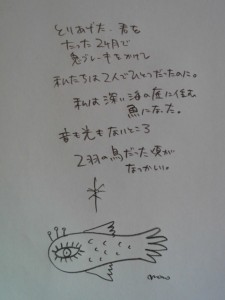 とりあげた 君を
たった2ヶ月で
急ブレーキをかけて
私たちは2人でひとつだったのに。
私は深い海の底に住む
魚になった。
音も光もないところ
2羽の鳥だった頃が
なつかしい。